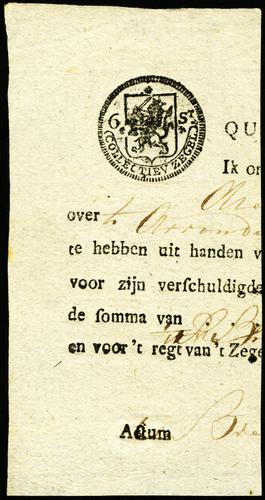 6 St
COLLECTIEV ZEGEL
QU
Ik on
over
te hebben uit handen v
voor zijn verschuldigde
de somma van
en voor 't regt van 't Zege
Actum Bre